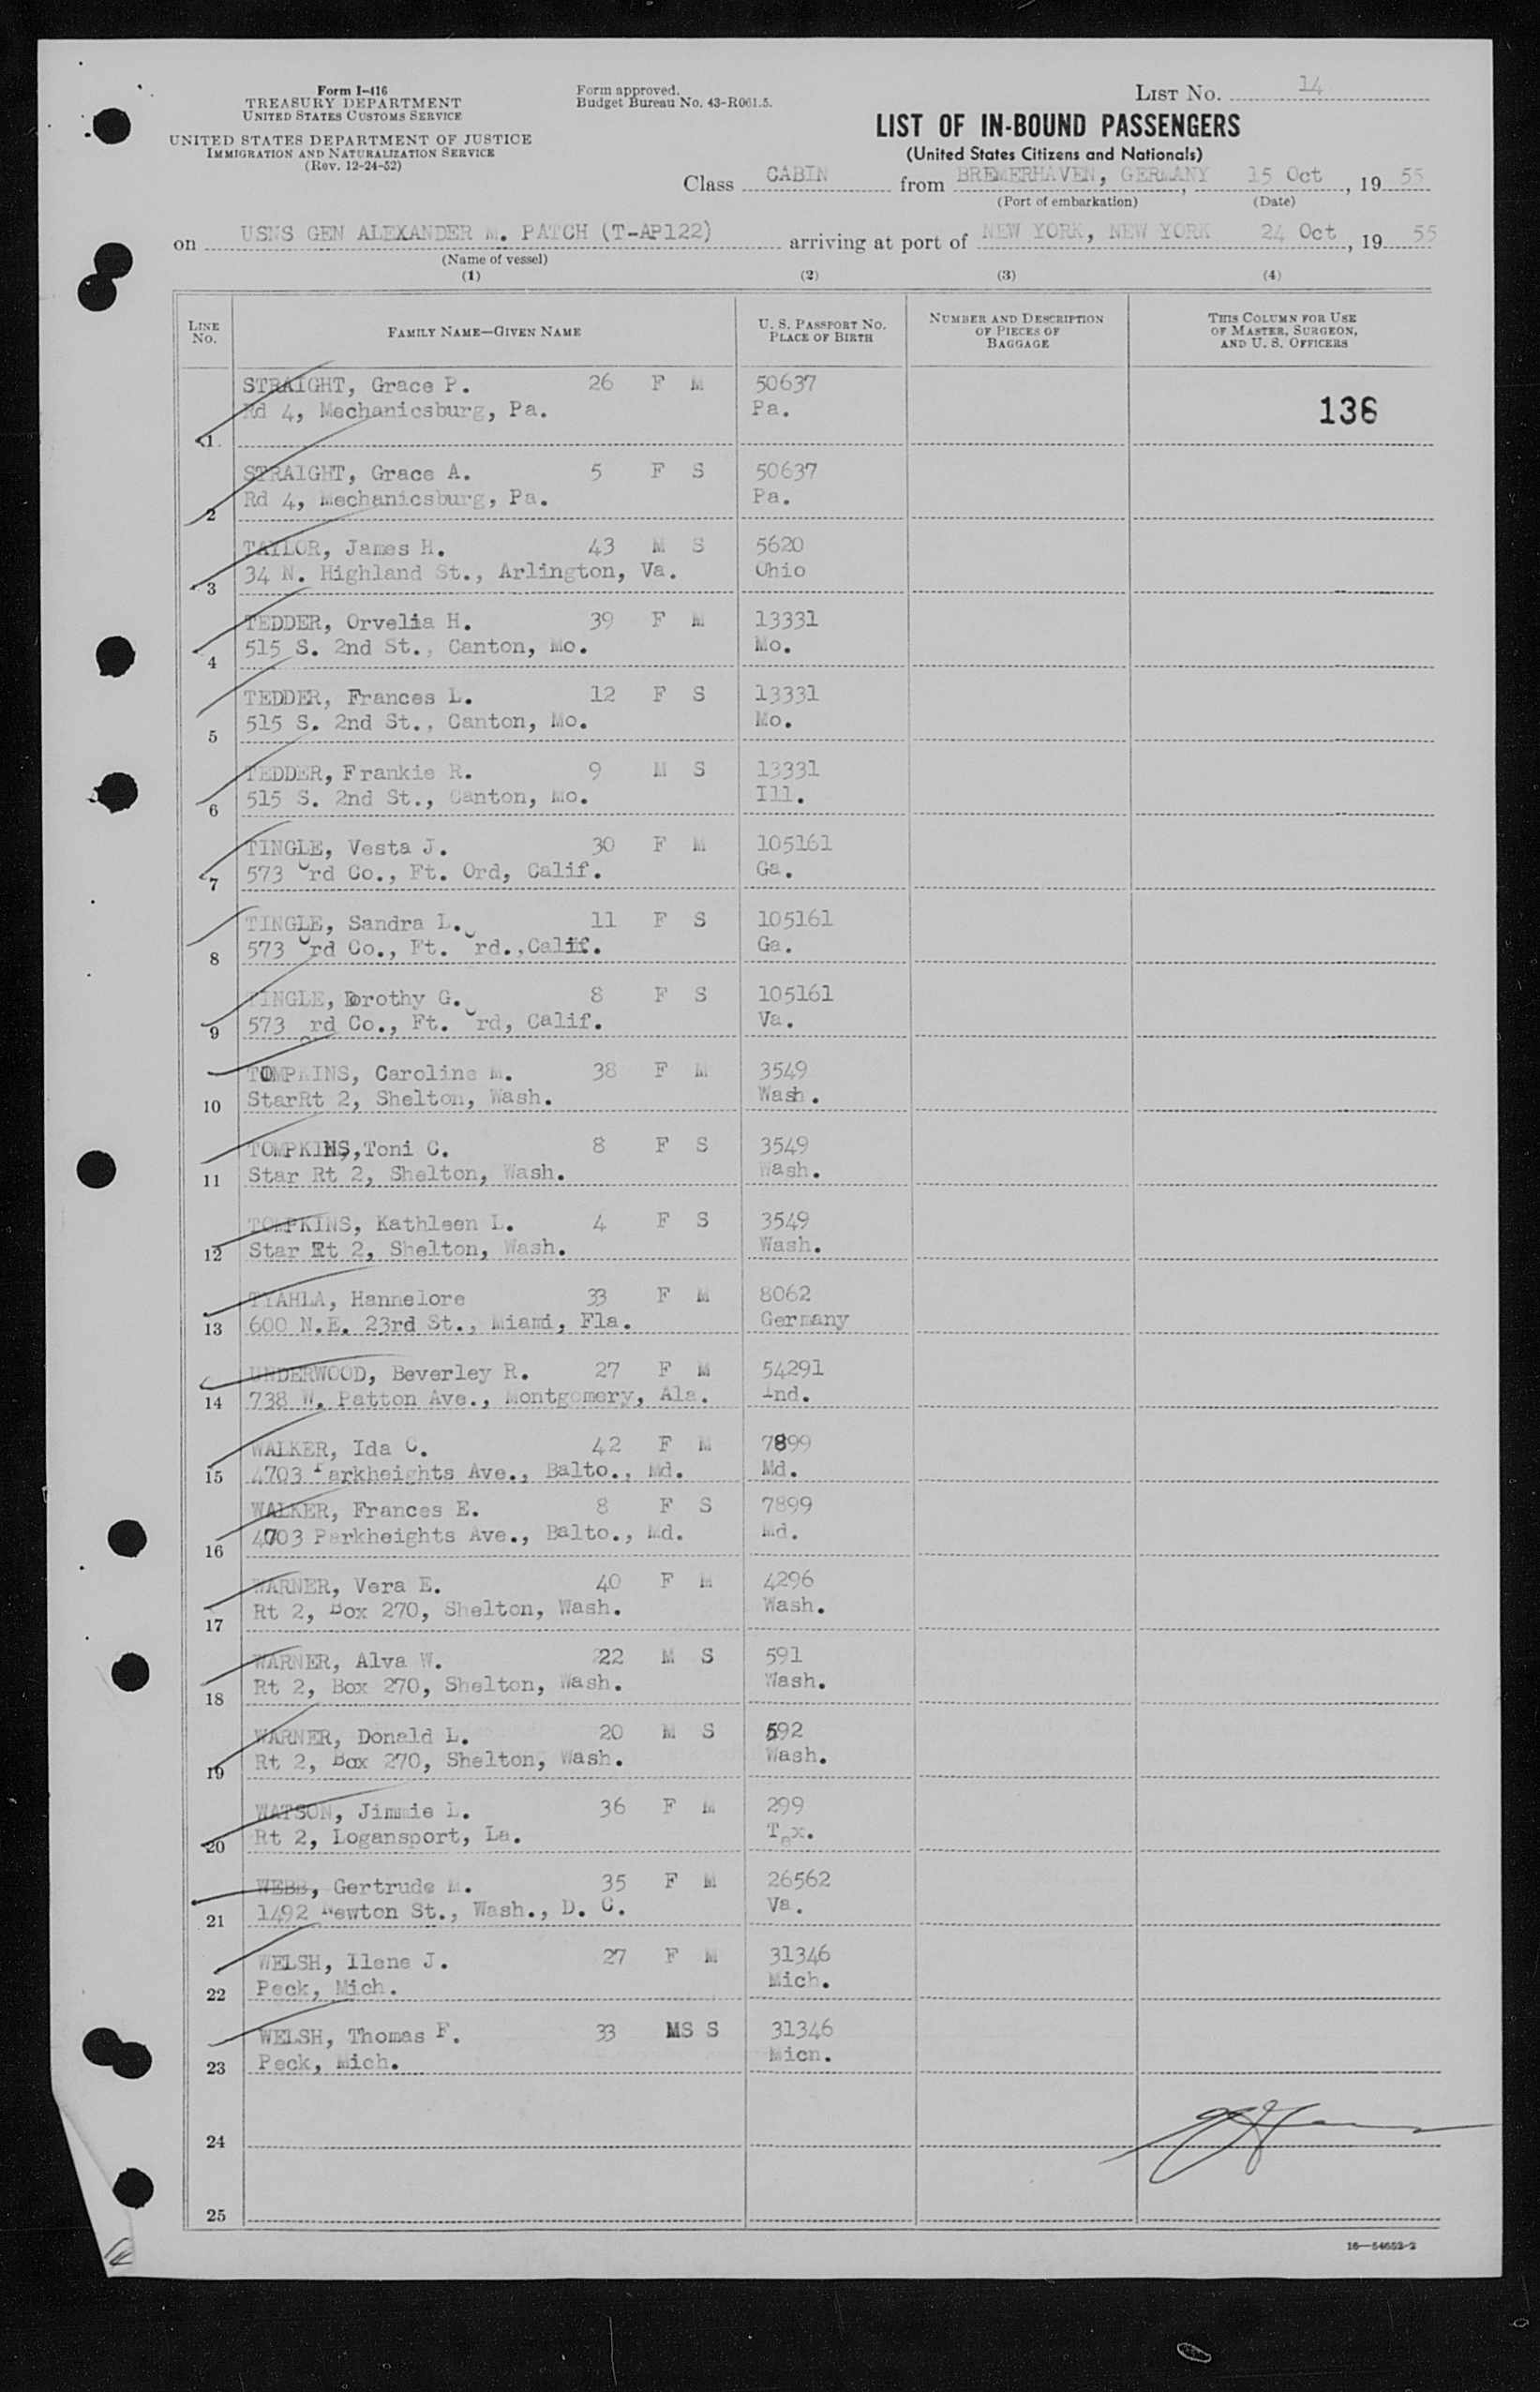 Form I-416
TREASURY DEPARTMENT
UNITED STATES CUSTOMS SERVICE
UNITED STATES DEPARTMENT OF JUSTICE
IMMIGRATION AND NATURALIZATION SERVICE
(Rev. 12-24-52)
Form approved.
Budget Bureau No. 43-R061.5.
LIST NO. 14
LIST OF IN-BOUND PASSENGERS
(United States Citizens and Nationals)
Class CABIN from BREMERHAVEN, GERMANY, 15 Oct, 19 55
(Port of embarkation) (Date)
on USNS GEN ALEXANDER M. PATCH (T-AP122) arriving at port of NEW YORK, NEW YORK 24 Oct, 19 55
(Name of vessel)
(1) (2) (3) (4)
LINE NO. FAMILY NAME—GIVEN NAME U. S. PASSPORT NO. PLACE OF BIRTH NUMBER AND DESCRIPTION OF PIECES OF BAGGAGE THIS COLUMN FOR USE OF MASTER, SURGEON, AND U. S. OFFICERS
STRAIGHT, Grace P. 26 F M 50637
Rd 4, Mechanicsburg, Pa. Pa. 136
1
STRAIGHT, Grace A. 5 F S 50637
Rd 4, Mechanicsburg, Pa. Pa.
2
TAYLOR, James H. 43 M S 5620
3 34 N. Highland St., Arlington, Va. Ohio
TEDDER, Orvelia H. 39 F M 13331
4 515 S. 2nd St., Canton, Mo. Mo.
TEDDER, Frances L. 12 F S 13331
5 515 S. 2nd St., Canton, Mo. Mo.
TEDDER, Frankie R. 9 M S 13331
6 515 S. 2nd St., Canton, Mo. Ill.
TINGLE, Vesta J. 30 F M 105161
7 573 Ord Co., Ft. Ord, Calif. Ga.
TINGLE, Sandra L. 11 F S 105161
8 573 Ord Co., Ft. Ord.,Calif. Ga.
TINGLE, Dorothy G. 8 F S 105161
9 573 Ord Co., Ft. Ord, Calif. Va.
TOMPKINS, Caroline M. 38 F M 3549
10 StarRt 2, Shelton, Wash. Wash.
TOMPKINS,Toni C. 8 F S 3549
11 Star Rt 2, Shelton, Wash. Wash.
TOMPKINS, Kathleen L. 4 F S 3549
12 Star Rt 2, Shelton, Wash. Wash.
TYAHLA, Hannelore 33 F M 8062
13 600 N.E. 23rd St., Miami, Fla. Germany
UNDERWOOD, Beverley R. 27 F M 54291
14 738 W. Patton Ave., Montgomery, Ala. Ind.
WALKER, Ida C. 42 F M 7899
15 4703 Parkheights Ave., Balto., Md. Md.
WALKER, Frances E. 8 F S 7899
16 4703 Parkheights Ave., Balto., Md. Md.
WARNER, Vera E. 40 F M 4296
17 Rt 2, Box 270, Shelton, Wash. Wash.
WARNER, Alva W. 22 M S 591
18 Rt 2, Box 270, Shelton, Wash. Wash.
WARNER, Donald L. 20 M S 592
19 Rt 2, Box 270, Shelton, Wash. Wash.
WATSON, Jimmie L. 36 F M 299
20 Rt 2, Logansport, La. Tex.
WEBB, Gertrude M. 35 F M 26562
21 1492 Newton St., Wash., D. C. Va.
WELSH, Ilene J. 27 F M 31346
22 Peck, Mich. Mich.
WELSH, Thomas F. 33 MS S 31346
23 Peck, Mich. Micn.
24
25
16—54652-2